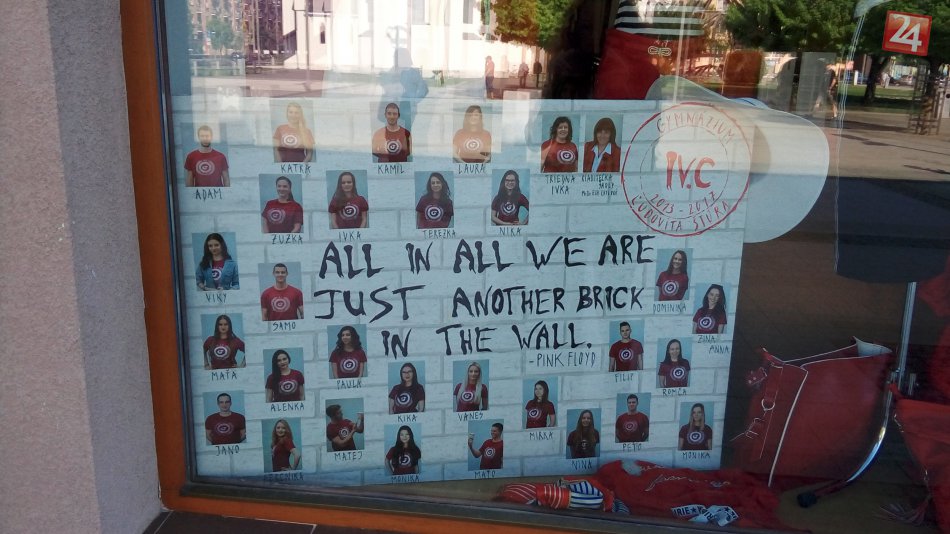 24
GYMNÁZIUM
IV.C
2013-2017
ĽUDOVÍTA ŠTÚRA
ADAM
KATKA
KAMIL
LAURA
TRIEDNA
IVKA
RIADITEĽKA
ŠKOLY
ZUZKA
IVKA
TEREZKA
NIKA
ALL IN ALL WE ARE
JUST ANOTHER BRICK
IN THE WALL.
-PINK FLOYD
VIKY
SAMO
DOMINIKA
ZINA
ANNA
MAŤA
PAULA
FILIP
ROMČA
ALENKA
KIKA
VANES
MIRKA
JANO
VERONIKA
MATEJ
MONIKA
MAŤO
NINA
PEŤO
MONIKA